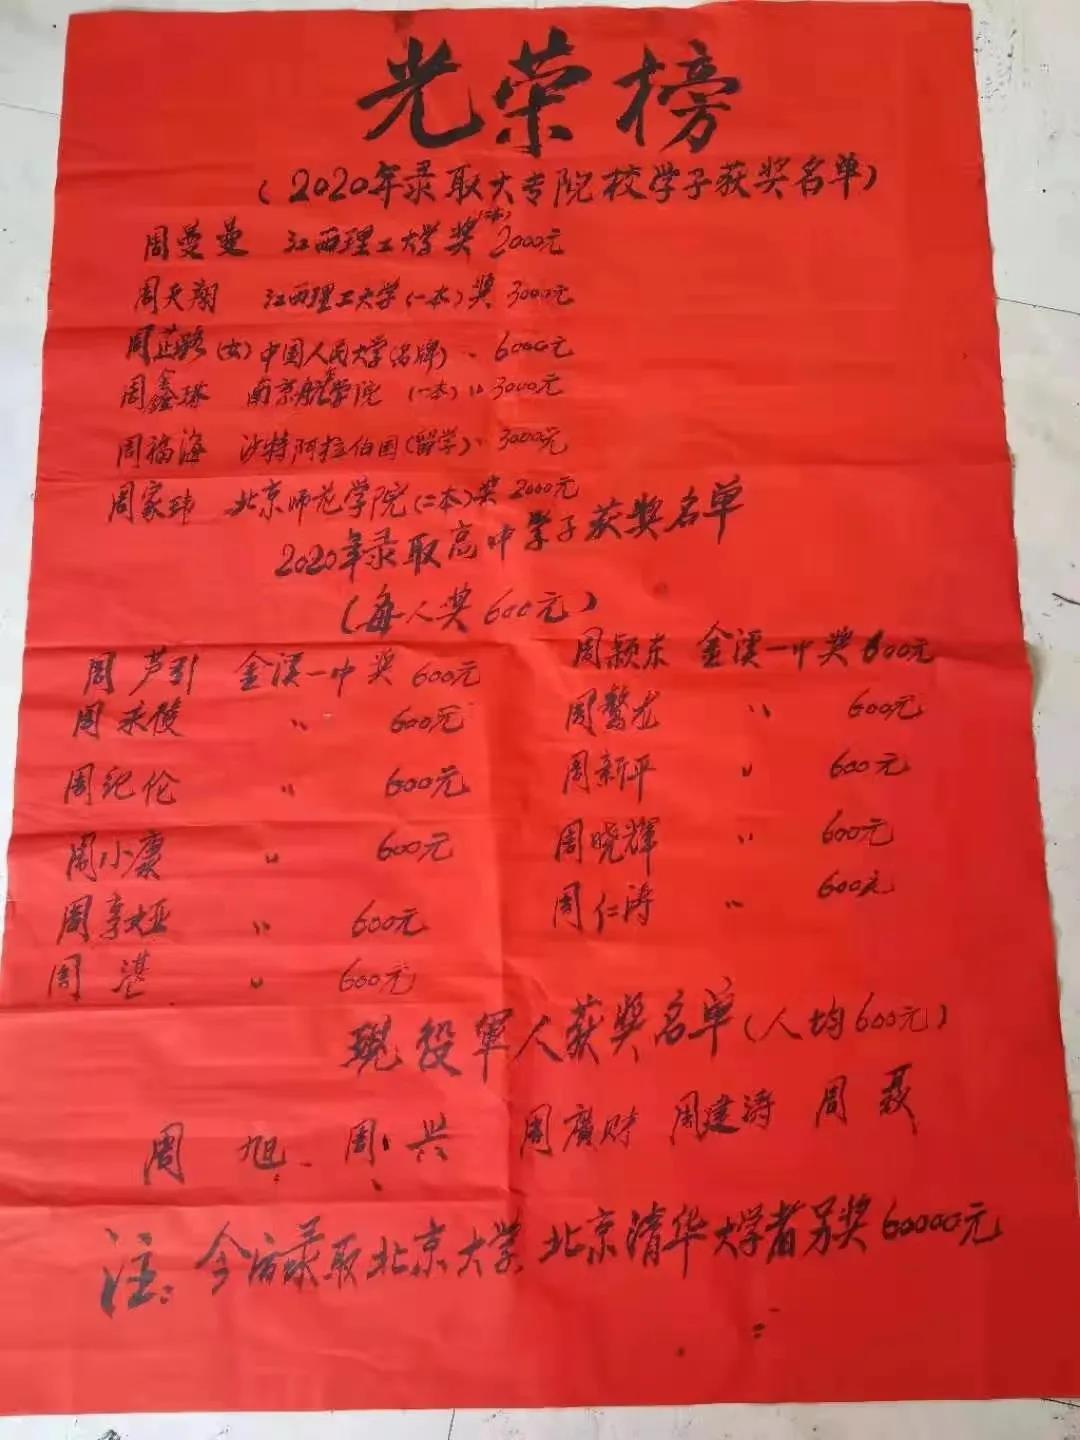 光荣榜
(2020年录取大专院校学子获奖名单)
周曼曼 江西理工大学(二本)奖 2000元
周天翔 江西理工大学(一本)奖 3000元
周芷璐(女) 中国人民大学(名牌) 、 6000元
周鑫琳 南京航空学院 (一本) 〃 3000元
周福海 沙特阿拉伯国(留学) 、 3000元
周家玮 北京师范学院(二本)奖 2000元
2020年录取高中学子获奖名单
(每人奖600元)
周芦引 金溪一中奖 600元 周颖东 金溪一中奖 600元
周 俊 〃 600元 周鳌龙 〃 600元
周纪伦 〃 600元 周新平 〃 600元
周小康 〃 600元 周晓辉 〃 600元
周 〃 600元 周仁涛 〃 600元
周湛 〃 600元
现役军人获奖名单(人均600元)
周旭 周兴 周廣财 周建涛 周聂
注: 今后录取北京大学 北京清华大学者另奖60000元